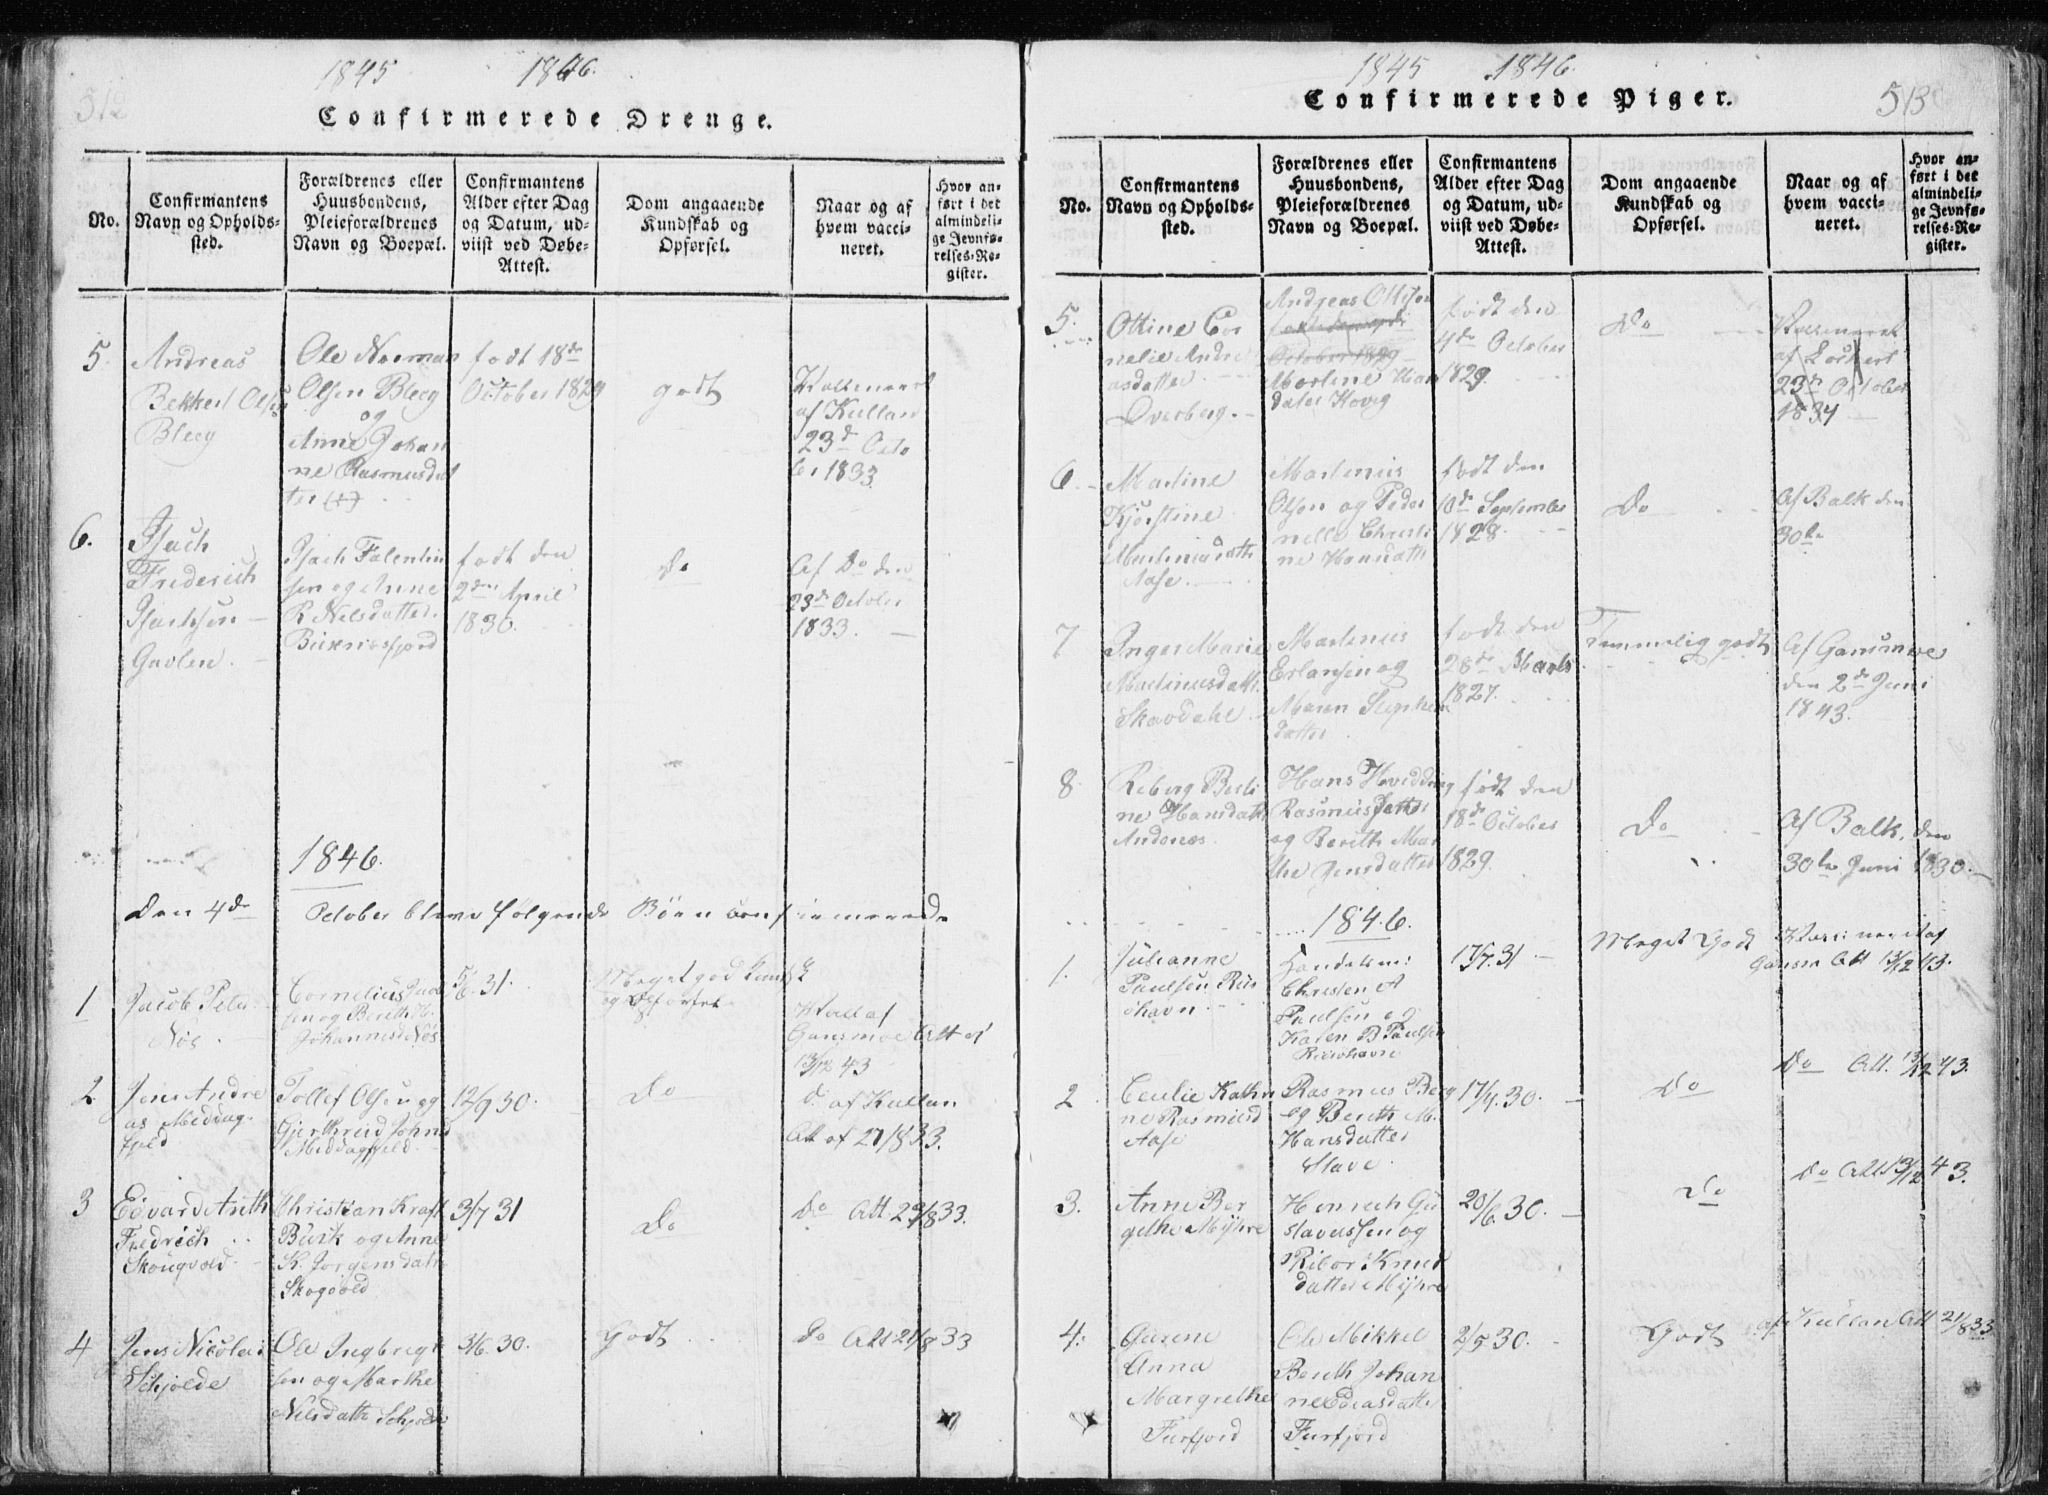 512
1845 1846.
Confirmerede Drenge.
No.
Confirmantens
Navn og Opholds-
sted.
Forældrenes eller
Huusbondens,
Pleieforældrenes
Navn og Boepæl.
Confirmantens
Alder efter Dag
og Datum, ud-
viist ved Døbe-
Attest.
Dom angaaende
Kundskab og
Opførsel.
Naar og af
hvem vacci-
neret.
Hvor an-
ført i det
almindeli-
ge Jevnfø-
relses-Re-
gister.
5.
Andreas
Bekkert Olsen
Bleeg
Ole Norman
Olsen Bleeg
og
Anne Johan
ne Rasmusdat
ter
født 18de
October 1829
godt
af Kullan
23de Octo
br 1833
6.
Isach
Frederich
Isachsen
Gavlen.
Isach Falentin
sen og Anne
R Nelsdatter
Buxnæsfjord
født den
2den April
1830.
Do
Af Do den
23de October
1833.
1846.
Den 4de October bleve følgende Børn confirmerede
1
Jacob Peter
Nøs
Cornelius
sen og Bereth H.
Johannesd Nøs
5/6.31.
Meget god Kundsk
og Opførsel
Vac af
Gansmoe Att af
13/12 43
2
Jens Andre
as Meddag-
fjeld
Tollef Olsen og
Gjerthrud Johns
Middagfjeld
12/9 30.
Do
Do af Kullan
Att af 27/8 33.
3
Edvard Anth
Fredrich
Skougvold
Christian Kraft
Busk og Anne
K. Jørgensdatt
Skogvold
3/7 31
Do
Do Att 29/8 33.
4
Jens Nicolai
Schjolde
Ole Ingbregt
sen og Marthe
Nilsdatt Schjold
3/6.30.
Godt
Do Att 21/8 33
1845 1846.
513
Confirmerede Piger.
No.
Confirmantens
Navn og Opholds-
sted.
Forældrenes eller
Huusbondens,
Pleieforældrenes
Navn og Boepæl.
Confirmantens
Alder efter Dag
og Datum, ud-
viist ved Døbe-
Attest.
Dom angaaende
Kundskab og
Opførsel.
Naar og af
hvem vacci-
neret.
Hvor an-
ført i det
almindeli-
ge Jevnfø-
relses-Re-
gister.
5.
Ottine Cor
nelie Andre
asdatter
Overberg.
Andreas Ottesen
October 1829
Martine Han
datter Hoveg
født den
4de October
1829.
Do
Vaccineret
af Lockert
23de October
1834
6.
Martine
Kjerstine
Martinusdatt
Aase.
Martinus
Olsen og Peder
nelle Christi
ne Hansdatt
født den
10de September
1828.
Do
Af Balk den
30te
7
Inger Marie
Martinusdatt.
Skavdahl
Martinus
Erlansen og
Maren Stephen
datter
født den
28de Marts
1827.
Temmelig godt
Af Gansmoe
den 2de Juni
1843.
8
Reberg Berli
ne Hansdatt
Andenæs
Hans Hvedding
Rasmus
og Bereth Mar
the Jensdatter
født den
18de October
1829.
Do
Af Balk, den
30te Juni 1830.
1846.
1.
Julianne
Paulsen Riis
øhavn
Handelsm:
Christen A
Paulsen og
Karen B Paulsen
Risøhavn
17/7.31
Meget Godt
Vaccineret af
Gansm Att 13/12 43.
2
Cecilie Kathri
ne Rasmusd
Aase
Rasmus Berg
og Bereth M.
Hansdatter
Stave.
17/4.30.
Do
Do Att. 13/12 43.
3.
Anne Ber
gethe Myhre
Henrech Gu
stavessen og
Ribor Knud
datter Myhre
20/6.30.
Do
Do Att 13/12 43.
4.
Gurene
Anna
Margrethe
Furfjord
Ole Mikkel
Bereth Johan
ne Eliasdatte
Furfjord
2/5 30.
Godt
af Kullan Att 21/8 33